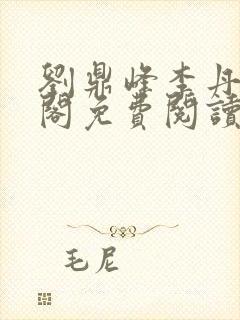 劉鼎峰李丹
閣免費閱讀
毛尼